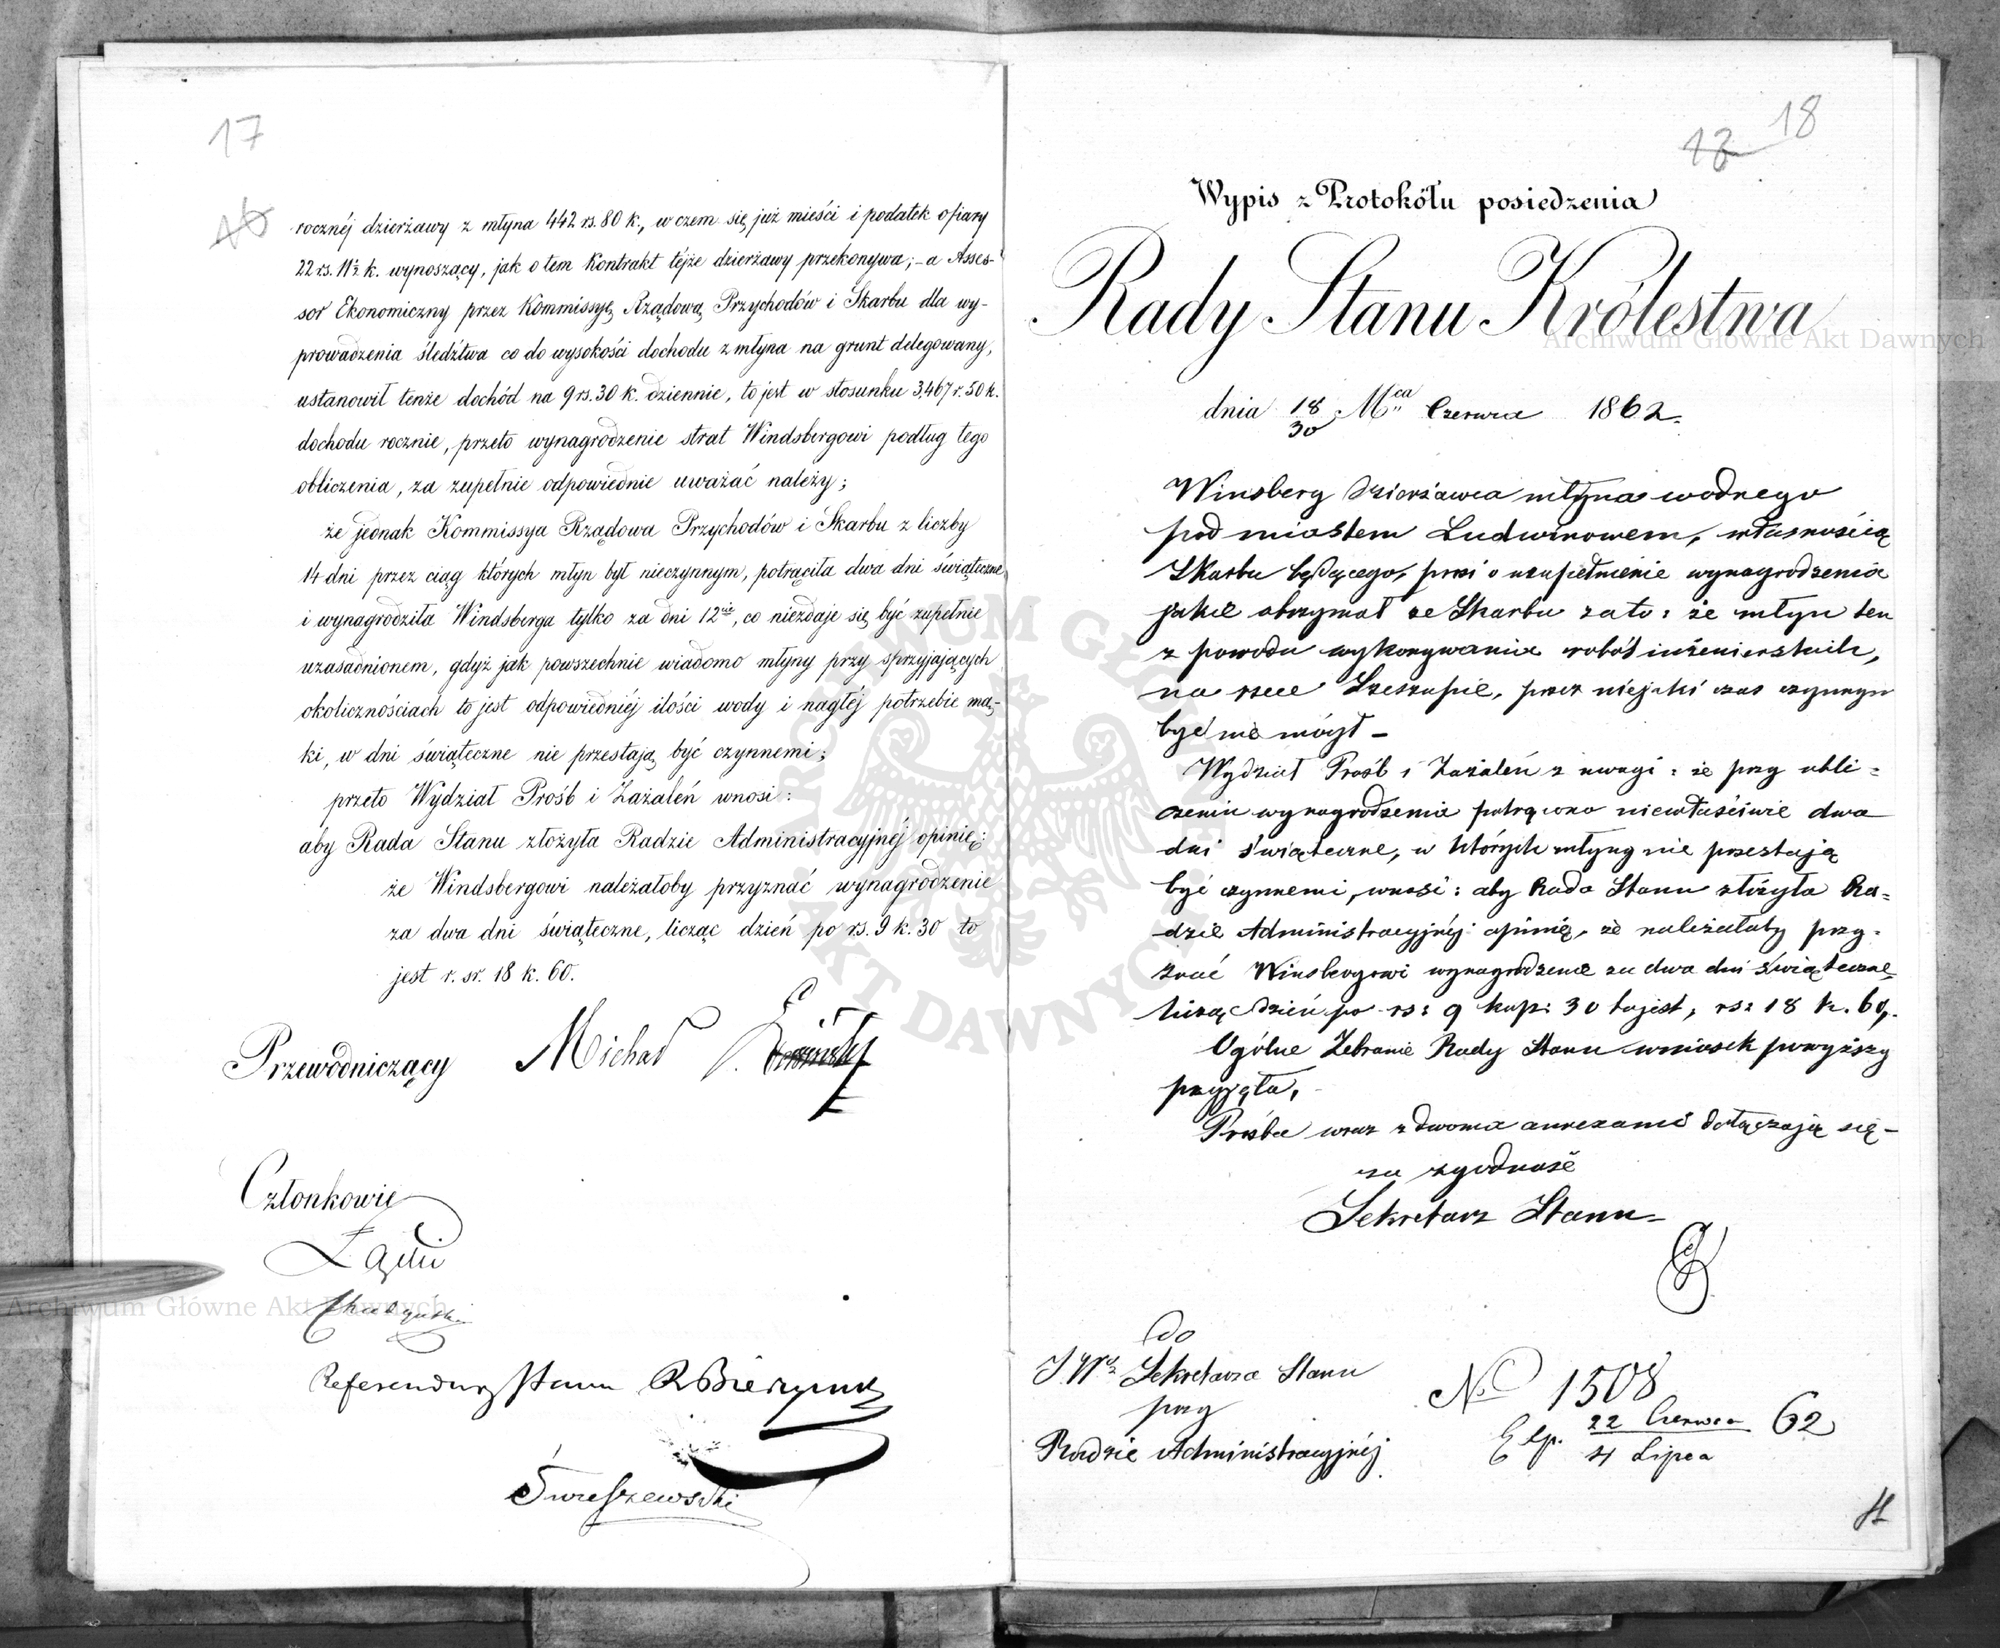 17
16
rocznéj dzierżawy z młyna 442 rs. 80 k., w czem się już mieści i podatek ofiary
22 rs. 11½ k. wynoszący, jak o tem Kontrakt tejże dzierżawy przekonywa; - a Asses-
sor Ekonomiczny przez Kommissyę Rządową Przychodów i Skarbu dla wy-
prowadzenia śledztwa co do wysokości dochodu z młyna na grunt delegowany,
ustanowił tenże dochód na 9 rs. 30 k. dziennie, to jest w stosunku 3,467 r. 50 k.
dochodu rocznie, przeto wynagrodzenie strat Windsbergowi podług tego
obliczenia, za zupełnie odpowiednie uważać należy;
że jednak Kommissya Rządowa Przychodów i Skarbu z liczby
14 dni przez ciąg których młyn był nieczynnym, potrąciła dwa dni świąteczne
i wynagrodziła Windsberga tylko za dni 12cie, co niezdaje się być zupełnie
uzasadnionem, gdyż jak powszechnie wiadomo młyny przy sprzyjających
okolicznościach to jest odpowiedniéj ilości wody i nagłéj potrzebie mą-
ki, w dni świąteczne nie przestają być czynnemi;
przeto Wydział Prośb i Zażaleń wnosi:
aby Rada Stanu złożyła Radzie Administracyjnéj opinię:
że Windsbergowi należałoby przyznać wynagrodzenie
za dwa dni świąteczne, licząc dzień po rs. 9 k. 30 to
jest r. sr. 18 k. 60.
Przewodniczący Michał
Członkowie
Łącki
Referendarz Stanu
18
Wypis z Protokółu posiedzenia
Rady Stanu Królestwa
dnia 18/30 Mca Czerwca 1862.
Winsberg dzierżawca młyna wodnego
pod miastem Ludwinowem, własnością
Skarbu będącego, prosi o uzupełnienie wynagrodzenia
jakie otrzymał ze Skarbu za to: że młyn ten
z powodu wykonywania robót inżenierskich,
na rzece Szeszupie, przez niejaki czas czynnym
być nie mógł -
Wydział Próśb i Zażaleń z uwagi: że przy obli-
czeniu wynagrodzenia potrącono niewłaściwie dwa
dni świąteczne, w których młyny nie przestają
być czynnemi, wnosi: aby Rada Stanu złożyła Ra-
dzie Administracyjnéj opinię, że należałoby przy-
znać Winsbergowi wynagrodzenie za dwa dni świąteczne
licząc dzień po rs: 9 kop: 30 to jest, rs: 18 k. 60.
Ogólne Zebranie Rady Stanu wniosek powyższy
przyjęła,
Prośba wraz z dwoma annexami dołączają się -
za zgodność
Sekretarz Stanu
do
JWo Sekretarza Stanu
przy
Radzie Administracyjnéj
No 1508
Exp. 22 Czerwca / 4 Lipca 62
Archiwum Główne Akt Dawnych
Archiwum Główne Akt Dawnych
ARCHIWUM GŁÓWNE AKT DAWNYCH